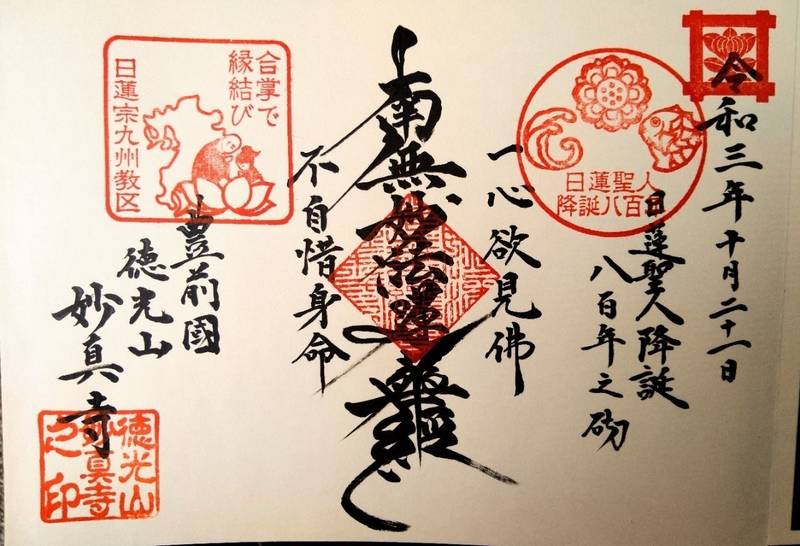 令和三年十月二十一日
日蓮聖人降誕
八百年之砌
日蓮聖人
降誕八百
一心欲見佛
南無妙法蓮華經
不自惜身命
合掌で
縁結び
日蓮宗九州教区
豊前國
徳光山
妙真寺
徳光山
妙真寺
之印